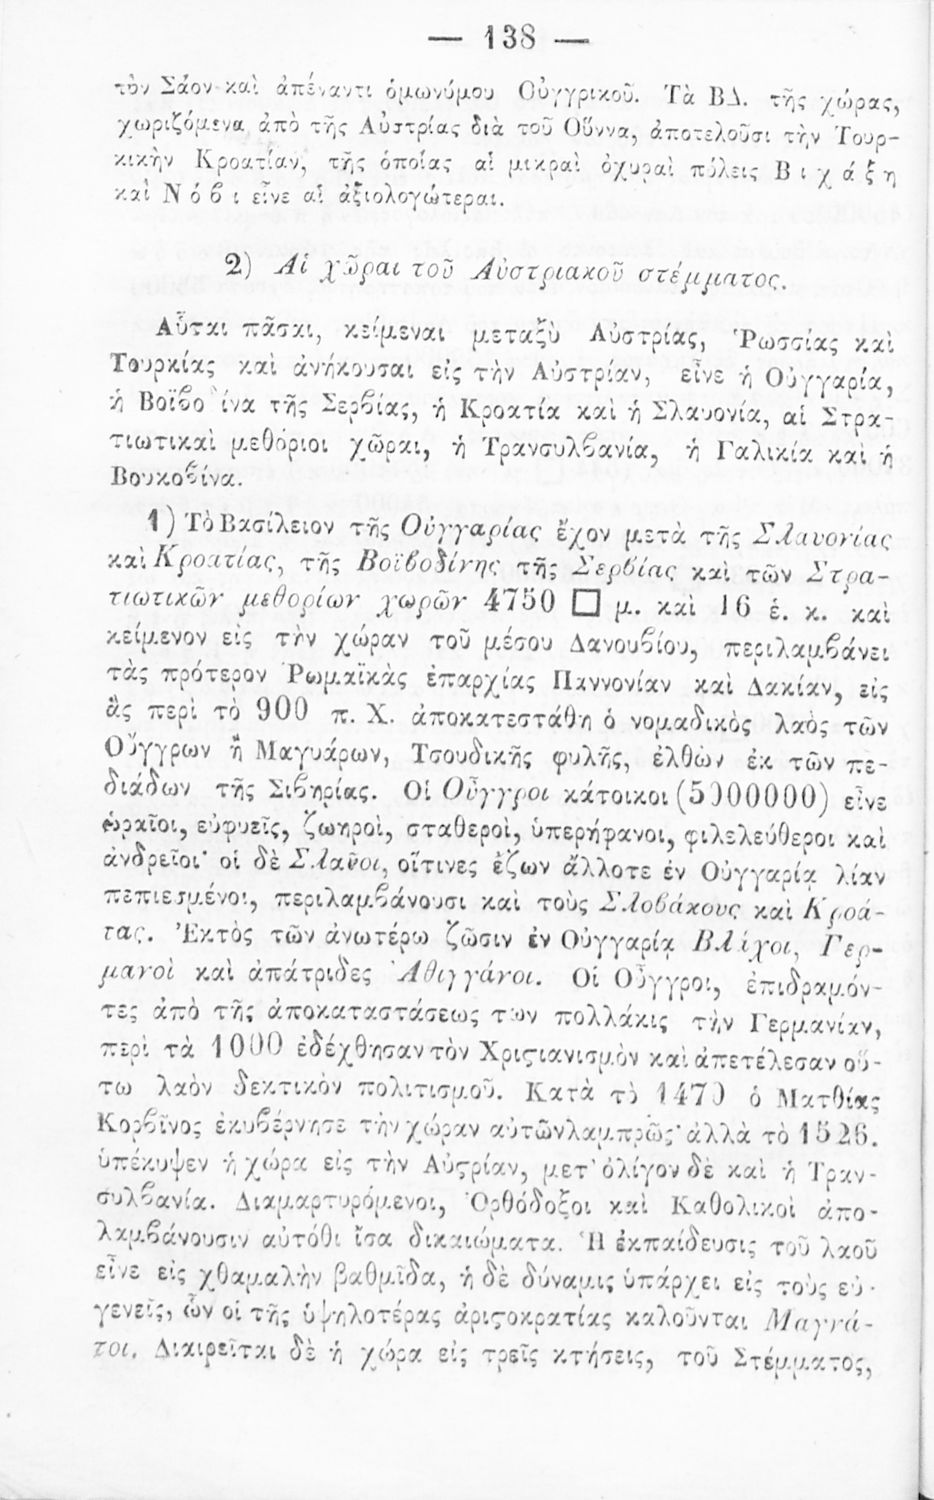 — 138 —
τὸν Σάον καὶ ἀπέναντι ὁμωνύμου Οὐγγρικοῦ. Τὰ ΒΔ. τῆς χώρας,
χωριζόμενα ἀπὸ τῆς Αὐστρίας διὰ τοῦ Οὔννα, ἀποτελοῦσι τὴν Τουρ-
κικὴν Κροατίαν, τῆς ὁποίας αἱ μικραὶ ὀχυραὶ πόλεις Βιχάξη
καὶ Νόβι εἶνε αἱ ἀξιολογώτεραι.
2) Αἱ χῶραι τοῦ Αὐστριακοῦ στέμματος.
Αὗται πᾶσαι, κείμεναι μεταξὺ Αὐστρίας, Ῥωσσίας καὶ
Τουρκίας καὶ ἀνήκουσαι εἰς τὴν Αὐστρίαν, εἶνε ἡ Οὐγγαρία,
ἡ Βοϊβο ίνα τῆς Σερβίας, ἡ Κροατία καὶ ἡ Σλαυονία, αἱ Στρα-
τιωτικαὶ μεθόριοι χῶραι, ἡ Τρανσυλβανία, ἡ Γαλικία καὶ ἡ
Βουκοβίνα.
1) Τὸ Βασίλειον τῆς Οὐγγαρίας ἔχον μετὰ τῆς Σλαυονίας
καὶ Κροατίας, τῆς Βοϊβοδίνης τῆς Σερβίας καὶ τῶν Στρα-
τιωτικῶν μεθορίων χωρῶν 4750 □ μ. καὶ 16 ἑ. κ. καὶ
κείμενον εἰς τὴν χώραν τοῦ μέσου Δανουβίου, περιλαμβάνει
τὰς πρότερον Ῥωμαϊκὰς ἐπαρχίας Παννονίαν καὶ Δακίαν, εἰς
ἃς περὶ τὸ 900 π. Χ. ἀποκατεστάθη ὁ νομαδικὸς λαὸς τῶν
Οὔγγρων ἢ Μαγυάρων, Τσουδικῆς φυλῆς, ἐλθὼν ἐκ τῶν πε-
διάδων τῆς Σιβηρίας. Οἱ Οὖγγροι κάτοικοι (5000000) εἶνε
ὡραῖοι, εὐφυεῖς, ζωηροί, σταθεροί, ὑπερήφανοι, φιλελεύθεροι καὶ
ἀνδρεῖοι· οἱ δὲ Σλαῦοι, οἵτινες ἔζων ἄλλοτε ἐν Οὐγγαρίᾳ λίαν
πεπιεσμένοι, περιλαμβάνουσι καὶ τοὺς Σλοβάκους καὶ Κροά-
τας. Ἐκτὸς τῶν ἀνωτέρω ζῶσιν ἐν Οὐγγαρίᾳ Βλάχοι, Γερ-
μανοὶ καὶ ἀπάτριδες Ἀθιγγάνοι. Οἱ Οὖγγροι, ἐπιδραμόν-
τες ἀπὸ τῆς ἀποκαταστάσεως των πολλάκις τὴν Γερμανίαν,
περὶ τὰ 1000 ἐδέχθησαν τὸν Χριϛιανισμὸν καὶ ἀπετέλεσαν οὕ-
τω λαὸν δεκτικὸν πολιτισμοῦ. Κατὰ τὸ 1470 ὁ Ματθίας
Κορβῖνος ἐκυβέρνησε τὴν χώραν αὐτῶν λαμπρῶς· ἀλλὰ τὸ 1526.
ὑπέκυψεν ἡ χώρα εἰς τὴν Αὐϛρίαν, μετ' ὀλίγον δὲ καὶ ἡ Τραν-
συλβανία. Διαμαρτυρόμενοι, Ὀρθόδοξοι καὶ Καθολικοὶ ἀπο-
λαμβάνουσιν αὐτόθι ἴσα δικαιώματα. Ἡ ἐκπαίδευσις τοῦ λαοῦ
εἶνε εἰς χθαμαλὴν βαθμῖδα, ἡ δὲ δύναμις ὑπάρχει εἰς τοὺς εὐ-
γενεῖς, ὧν οἱ τῆς ὑψηλοτέρας ἀριϛοκρατίας καλοῦνται Μαγνά-
τοι. Διαιρεῖται δὲ ἡ χώρα εἰς τρεῖς κτήσεις, τοῦ Στέμματος,